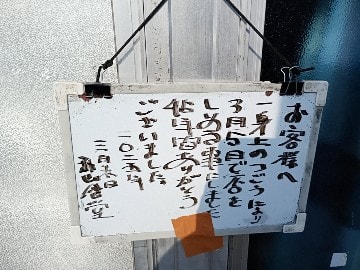 お客様へ
一身上のつごうにより
3月5日で店を
しめる事にしました
46年間ありがとう
ございました
二〇二五年
三月五日